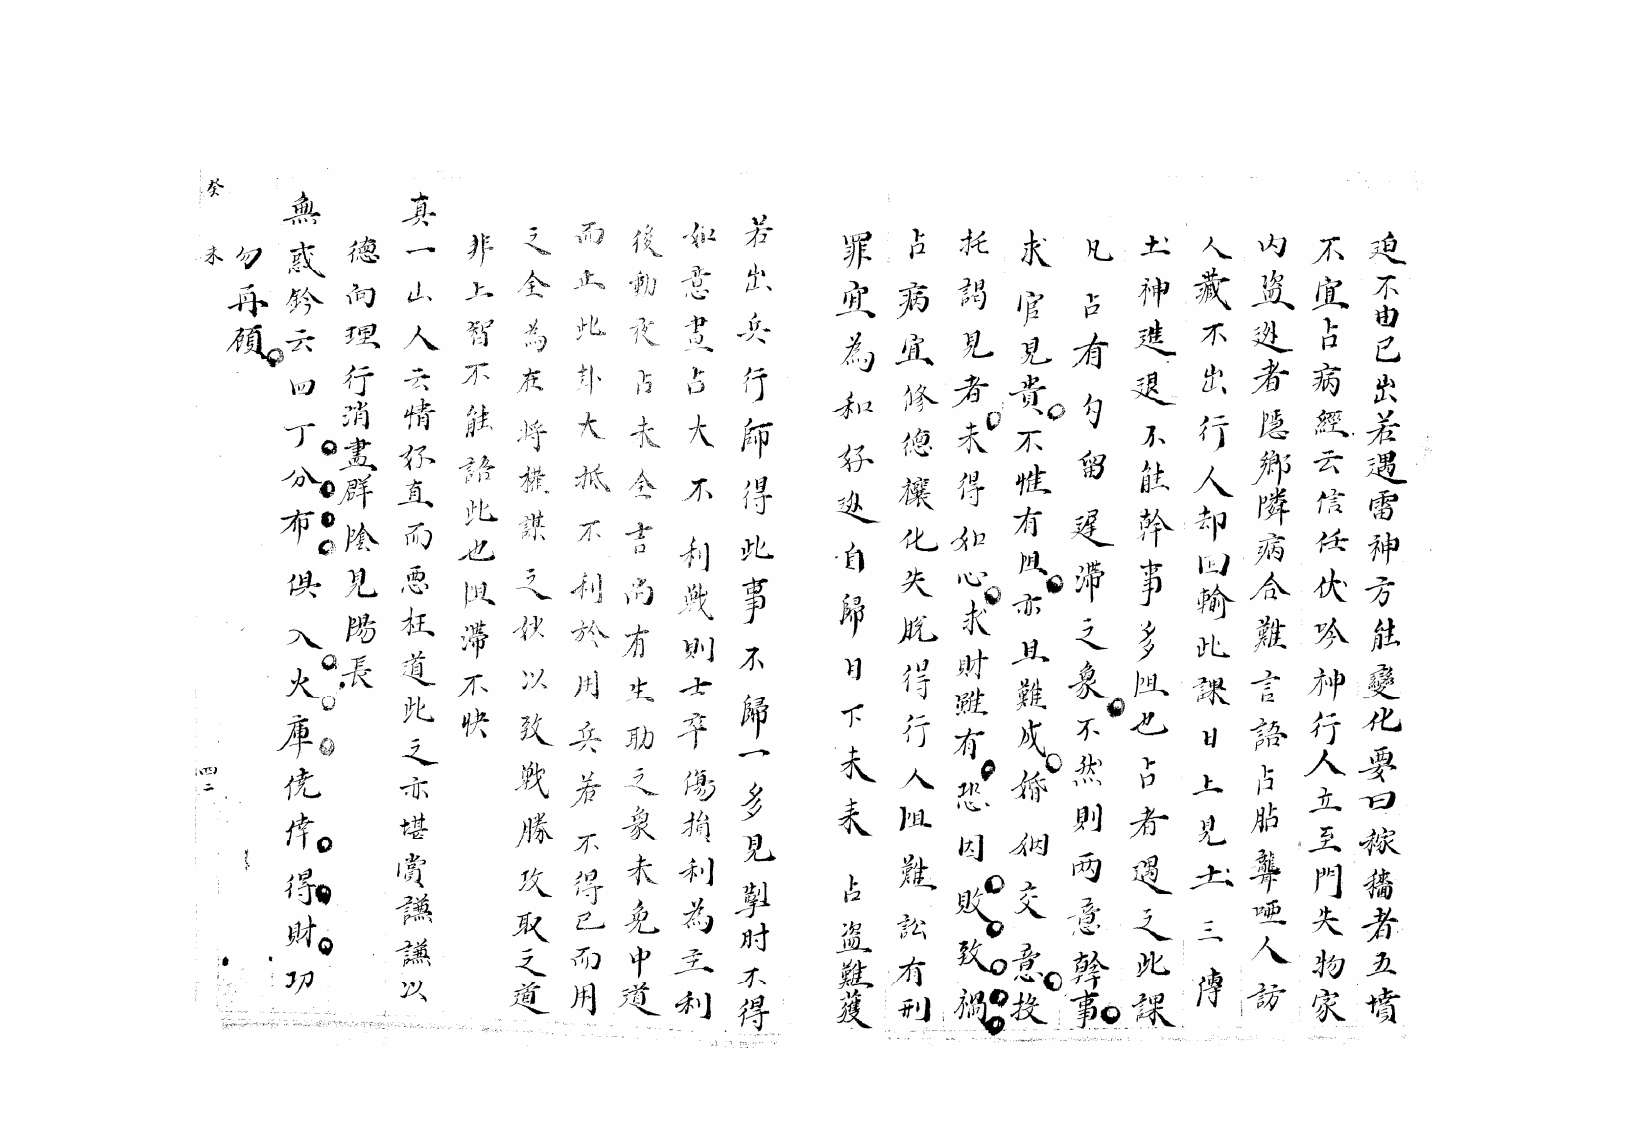 迫不由已出若遇雷神方能變化要曰稼穡者五墳
不宜占病經云信任伏吟神行人立至門失物家
内盜逃者隱鄉隣病合難言語占胎聾啞人訪
人藏不出行人却回輸此課日上見土三傳
土神進退不能幹事多阻也占者遇之此課
凡占有勾留遲滯之象不然則两意幹事
求官見貴不惟有阻亦且難成婚姻交意投
托謁見者未得如心求財雖有恐因敗致禍
占病宜修德禳化失脫得行人阻難訟有刑
罪宜為和好逃自歸日下未来占盗難獲
若出兵行師得此事不歸一多見掣肘不得
如意晝占大不利戰則士卒傷損利為主利
後動夜占未全吉尚有生助之象未免中道
而止此卦大抵不利於用兵若不得已而用
之全為在将權謀之妙以致戰勝攻取之道
非上智不能語此也阻滯不快
真一山人云情好直而惡枉道此之亦堪賞謙謙以
德向理行消晝群陰見陽長
無惑鈐云四丁分布俱入火庫僥倖得財功
勿再顧
癸
未
四二